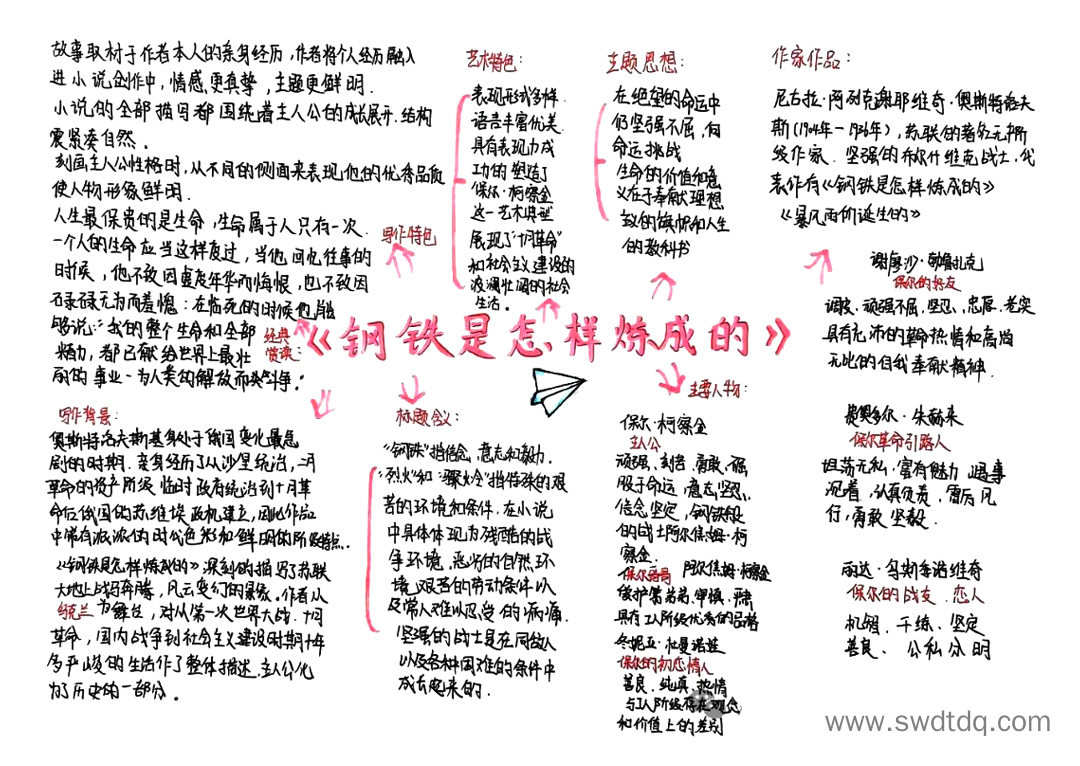 故事取材于作者本人的亲身经历，作者将个人经历融入
进小说创作中，情感更真挚，主题更鲜明.
小说的全部描写都围绕着主人公的成长展开.结构
紧凑自然.
刻画主人公性格时，从不同的侧面来表现他的优秀品质
使人物形象鲜明.
写作特色
人生最保贵的是生命，生命属于人只有一次.
一个人的生命应当这样度过，当他回忆往事的
时候，他不致因虚度年华而悔恨，也不致因
碌碌无为而羞愧：在临死的时候他能
够说："我的整个生命和全部
精力，都已献给世界上最壮
丽的事业—为人类的解放而斗争."
经典
赏读：
艺术特色：
表现形式多样
语言丰富优美
具有表现力成
功的塑造了
保尔·柯察金
这一艺术典型
展现了"十月革命"
和社会主义建设的
浪漫壮阔的社会
生活.
主题思想：
在绝望的命运中
仍坚强不屈，向
命运挑战
生命的价值和意
义在于奉献理想
的旗帜和人生
的教科书
作家作品：
尼古拉·阿列克谢耶维奇·奥斯特洛夫
斯(1904年—1936年)，苏联的著名无产阶
级作家.坚强的布尔什维克战士，代
表作有《钢铁是怎样炼成的》
《暴风雨所诞生的》
《钢铁是怎样炼成的》
谢廖沙·勃鲁扎克
保尔的好友
调皮、顽强不屈，坚忍、忠厚、老实
具有充沛的革命热情和高尚
无比的自我奉献精神.
写作背景：
奥斯特洛夫斯基身处于俄国变化最急
剧的时期.亲身经历了从沙皇统治，二月
革命的资产阶级临时政府统治到十月革
命后俄国的苏维埃政权建立，因此作品
中带有浓浓的时代色彩和鲜明的阶级特点.
《钢铁是怎样炼成的》深刻的描写了苏联
大地上战马奔腾，风云变幻的景象.作者以
乌克兰为舞台，对从第一次世界大战.十月
革命，国内战争到社会主义建设时期十年
多严峻的生活作了整体描述.主人公化
为了历史的一部分.
标题含义：
"钢铁"指信念，意志和毅力.
"烈火"和"骤冷"指特殊的艰
苦的环境和条件.在小说
中具体体现为残酷的战
争环境，恶劣的自然环
境、艰苦的劳动条件以
及常人难以忍受的病痛.
坚强的战士是在同敌人
以及各种困难的条件中
成长起来的.
主要人物：
保尔·柯察金
主人公
顽强、刻苦、勇敢、不屈
服于命运，意志坚忍、
信念坚定，钢铁般
的战士阿尔焦姆·柯
察金.
保尔哥哥 阿尔焦姆·柯察金
爱护弟弟、谨慎、严肃
具有工人阶级优秀的品格
冬妮亚·杜曼诺娃
保尔的初恋情人
善良、纯真、热情
与工人阶级存在观念
和价值上的差别
费奥多尔·朱赫来
保尔革命引路人
坦荡无私，富有魅力 遇事
沉着，认真负责，雷厉风
行，勇敢坚毅.
丽达·乌斯季诺维奇
保尔的战友，恋人
机明、干练、坚定
善良、公私分明
www.swdtdq.com